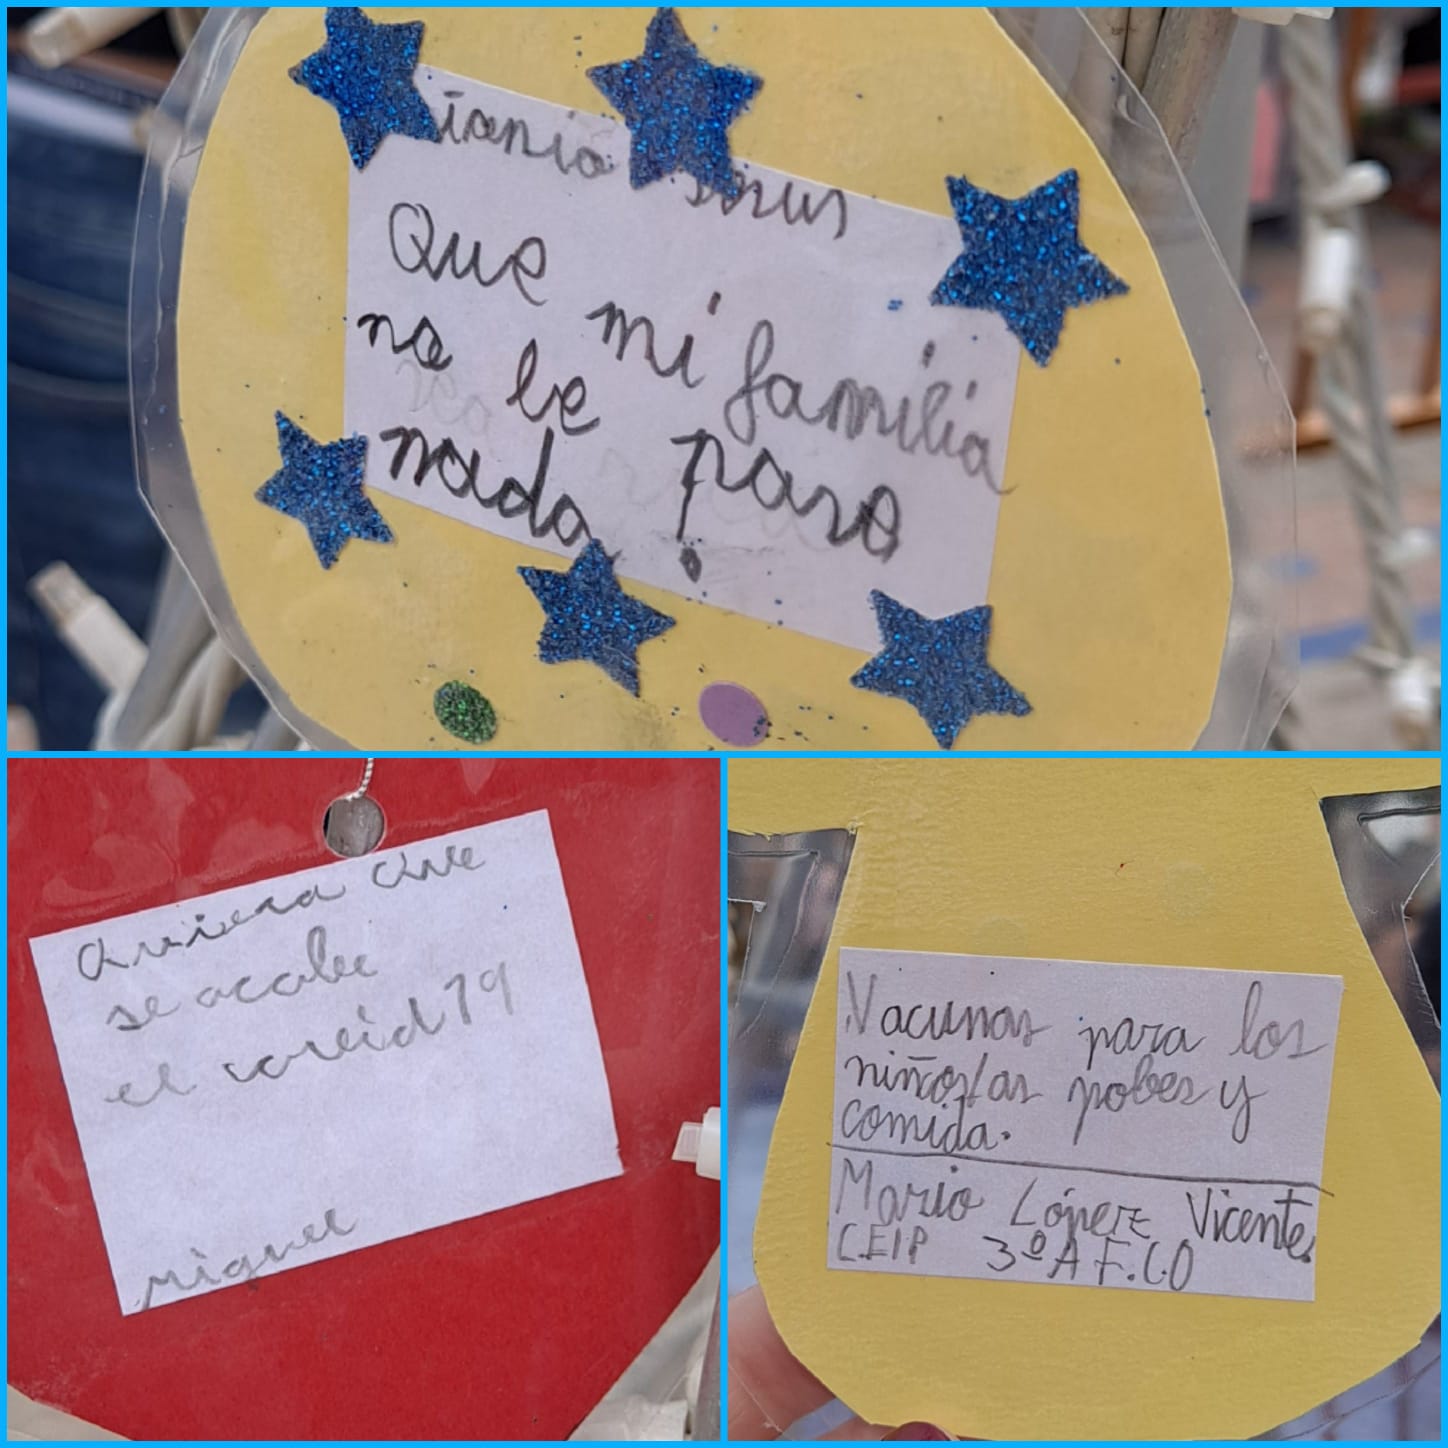 Que mi familia
no le pase
nada!
Quiera que
se acabe
el coveid 19
Miguel
Vacunas para los
niños/as pobes y
comida.
Mario López Vicente
C.E.I.P 3º A F.C.O